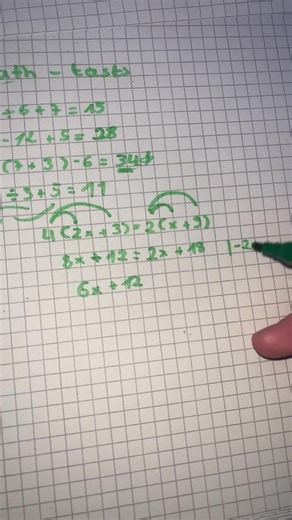 ath - tasks
÷ 6 + 7 = 15
- 12 + 5 = 28
(7 + 3) - 6 = 34
÷ 3 + 5 = 11
4(2x + 3) = 2(x + 9)
8x + 12 = 2x + 18 | -2
6x + 12